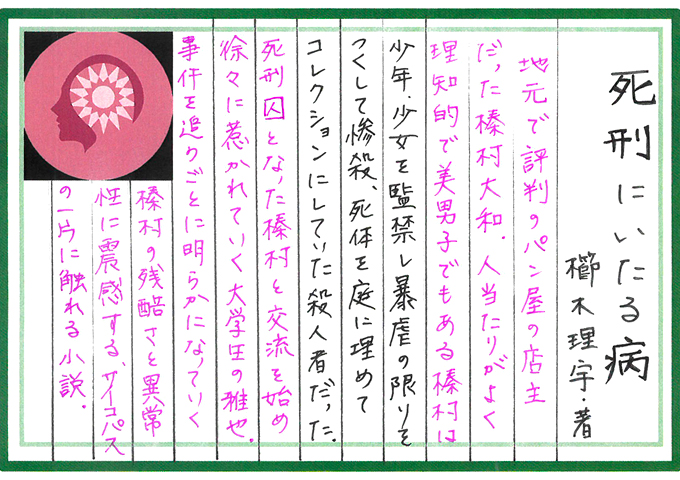 死刑にいたる病
櫛木理宇・著
地元で評判のパン屋の店主
だった榛村大和。人当たりがよく
理知的で美男子でもある榛村は
少年、少女を監禁し暴虐の限りを
つくして惨殺、死体を庭に埋めて
コレクションにしていた殺人者だった。
死刑囚となった榛村と交流を始め
徐々に惹かれていく大学生の雅也。
事件を追うごとに明らかになっていく
榛村の残酷さと異常
性に震感する、サイコパス
の一片に触れる小説。